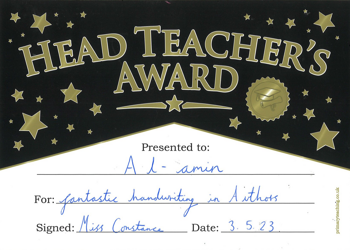 HEAD TEACHER'S
AWARD
Presented to:
Al-amin
For: fantastic handwriting in
Signed: Miss Constance Date: 3.5.23